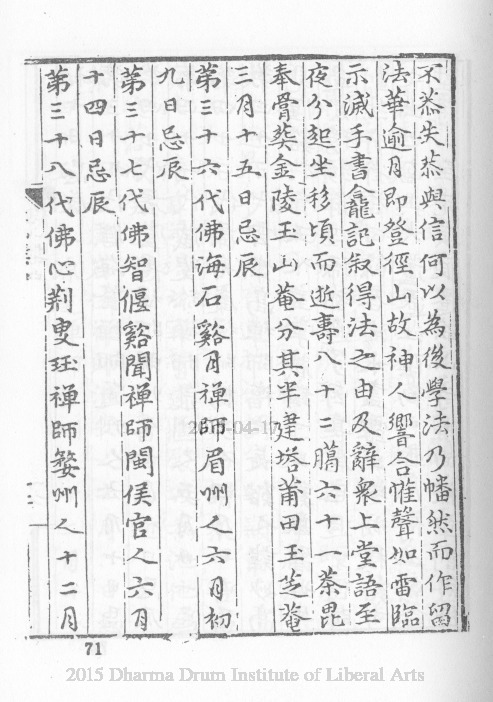 不恭失恭與信何以為後學法乃幡然而作留
法華逾月即登徑山故神人響合惟聲如雷臨
示滅手書龕記叙得法之由及辭衆上堂語至
夜分起坐移頃而逝壽八十二臈六十一荼毘
奉骨葬金陵玉山菴分其半建塔莆田玉芝菴
三月十五日忌辰
第三十六代佛海石谿月禪師眉州人六月初
九日忌辰
第三十七代佛智偃谿聞禪師閩侯官人六月
十四日忌辰
第三十八代佛心荆叟珏禪師婺州人十二月
71
2015 Dharma Drum Institute of Liberal Arts